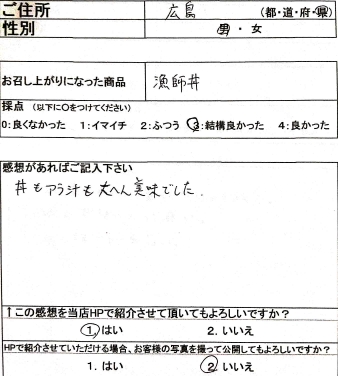 ご住所 広島 (都・道・府・県)
性別 男 ・ 女
お召し上がりになった商品 漁師丼
採点 (以下に○をつけてください)
0:良くなかった 1:イマイチ 2:ふつう 3:結構良かった 4:良かった
感想があればご記入下さい
丼もアラ汁も大へん美味でした.
↑この感想を当店HPで紹介させて頂いてもよろしいですか?
1. はい 2. いいえ
HPで紹介させていただける場合、お客様の写真を撮って公開してもよろしいですか?
1. はい 2. いいえ